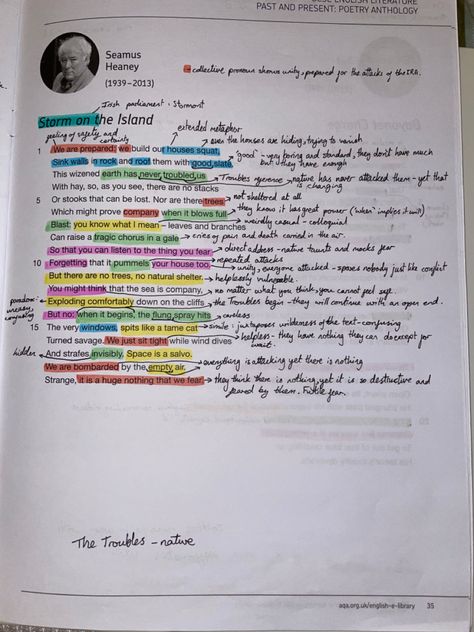 GCSE ENGLISH LITERATURE
PAST AND PRESENT: POETRY ANTHOLOGY
Seamus
Heaney
(1939–2013)
collective pronoun shows unity, prepared for the attacks of the IRA.
Irish parliament : Stormont
Storm on the Island
feeling of safety and certainty
extended metaphor
even the houses are hiding, trying to vanish
1 We are prepared: we build our houses squat,
Sink walls in rock and roof them with good slate.
'good' - very boring and standard, they don't have much but they have enough
This wizened earth has never troubled us
Troubles reference - nature has never attacked them - yet that is changing
With hay, so, as you see, there are no stacks
5 Or stooks that can be lost. Nor are there trees
not sheltered at all
Which might prove company when it blows full
they know it has great power ('when' implies it will)
Blast: you know what I mean – leaves and branches
weirdly casual - colloquial
Can raise a tragic chorus in a gale
cries of pain and death carried in the air.
So that you can listen to the thing you fear
direct address - native taunts and mocks fear
10 Forgetting that it pummels your house too.
repeated attacks
unity, everyone attacked - spares nobody just like conflict
But there are no trees, no natural shelter.
helplessly vulnerable.
You might think that the sea is company,
no matter what you think, you cannot feel safe
paradox: uneasy, confusing
Exploding comfortably down on the cliffs
the Troubles begin - they will continue with an open end.
But no: when it begins, the flung spray hits
careless
15 The very windows, spits like a tame cat
simile : juxtaposes wilderness of the text - confusing
Turned savage. We just sit tight while wind dives
helpless - they have nothing they can do except for wait.
hidden
And strafes invisibly. Space is a salvo.
We are bombarded by the empty air.
everything is attacking yet there is nothing
Strange, it is a huge nothing that we fear.
they think there is nothing, yet it is so destructive and feared by them. Futile fear.
The Troubles - native
aqa.org.uk/english-e-library 35